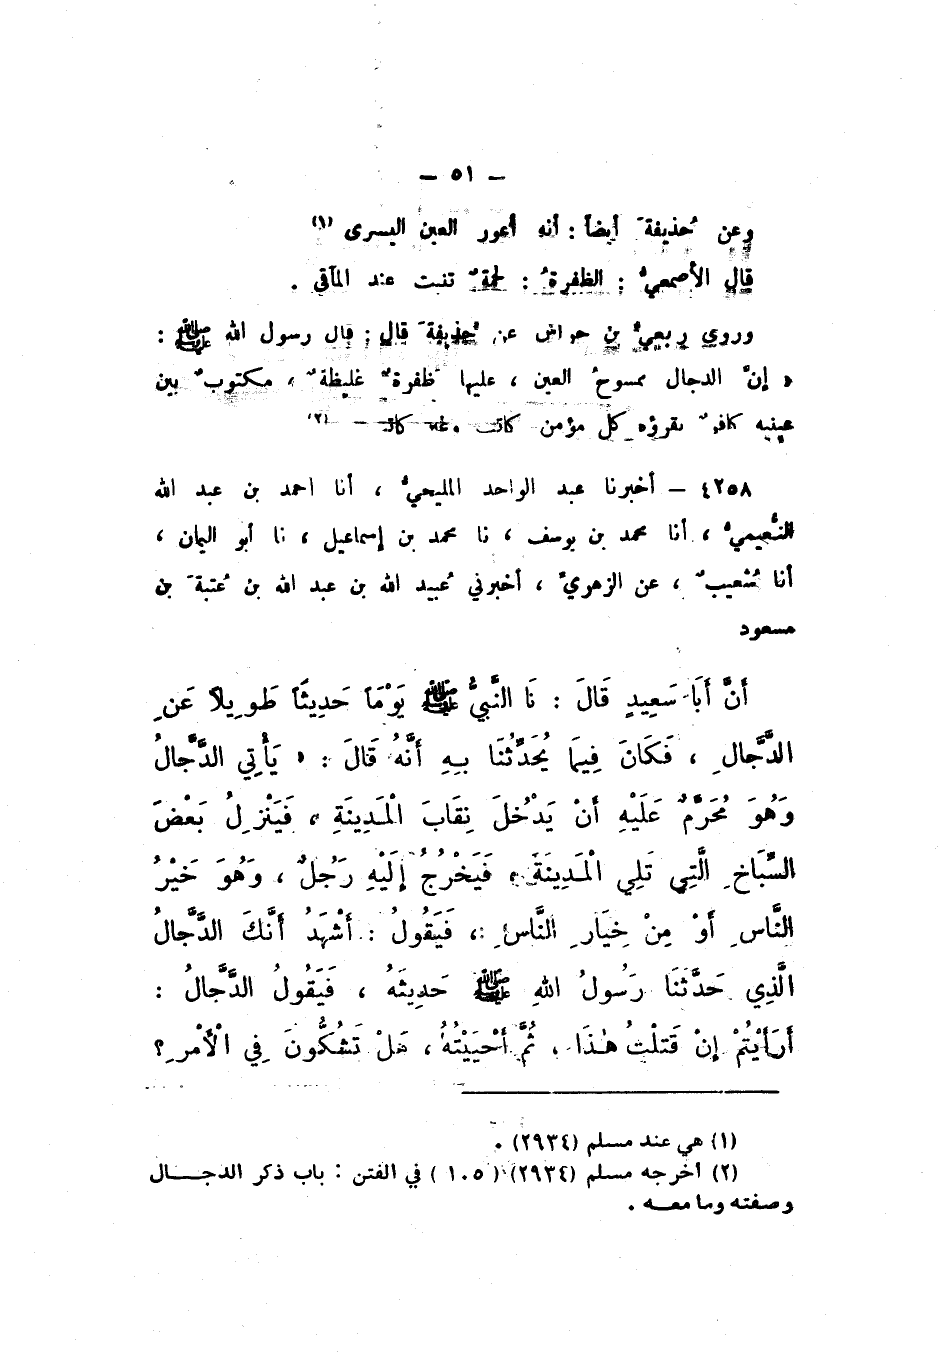 — ٥١ —
وعن حُذيفةَ أيضاً : أنه أعور العين اليسرى (١)
قال الأصمعيُّ : الظفرةُ : لحمةٌ تنبت عند المآقي .
وروى ربعيُّ بن حراش عن حُذيفةَ قال : قال رسول الله ﷺ :
« إنَّ الدجال ممسوحُ العين ، عليها ظَفرةٌ غليظةٌ ، مكتوبٌ بين
عينيه كافرٌ يقرؤه كل مؤمن كاتب وغير كاتب » (٢)
٤٢٥٨ — أخبرنا عبد الواحد المليحيُّ ، أنا احمد بن عبد الله
النُّعيميُّ ، أنا محمد بن يوسف ، نا محمد بن إسماعيل ، نا أبو اليمان ،
أنا شُعيبٌ ، عن الزهريِّ ، أخبرني عُبيد الله بن عبد الله بن عُتبةَ بن
مسعود
أَنَّ أَبَا سَعِيدٍ قَالَ : نَا النَّبِيُّ ﷺ يَوْمَاً حَدِيثَاً طَوِيلاً عَنِ
الدَّجَّالِ ، فَكَانَ فِيمَا يُحَدِّثُنَا بِهِ أَنَّهُ قَالَ : « يَأْتِي الدَّجَّالُ
وَهُوَ مُحَرَّمٌ عَلَيْهِ أَنْ يَدْخُلَ نِقَابَ الْمَدِينَةِ ، فَيَنْزِلُ بَعْضَ
السِّبَاخِ الَّتِي تَلِي الْمَدِينَةَ ، فَيَخْرُجُ إِلَيْهِ رَجُلٌ ، وَهُوَ خَيْرُ
النَّاسِ أَوْ مِنْ خِيَارِ النَّاسِ ، فَيَقُولُ : أَشْهَدُ أَنَّكَ الدَّجَّالُ
الَّذِي حَدَّثَنَا رَسُولُ اللهِ ﷺ حَدِيثَهُ ، فَيَقُولُ الدَّجَّالُ :
أَرَأَيْتُمْ إِنْ قَتَلْتُ هٰذَا ، ثُمَّ أَحْيَيْتُهُ ، هَلْ تَشُكُّونَ فِي الْأَمْرِ؟
(١) هي عند مسلم (٢٩٣٤) .
(٢) أخرجه مسلم (٢٩٣٤) (١٠٥) في الفتن : باب ذكر الدجال
وصفته وما معه .